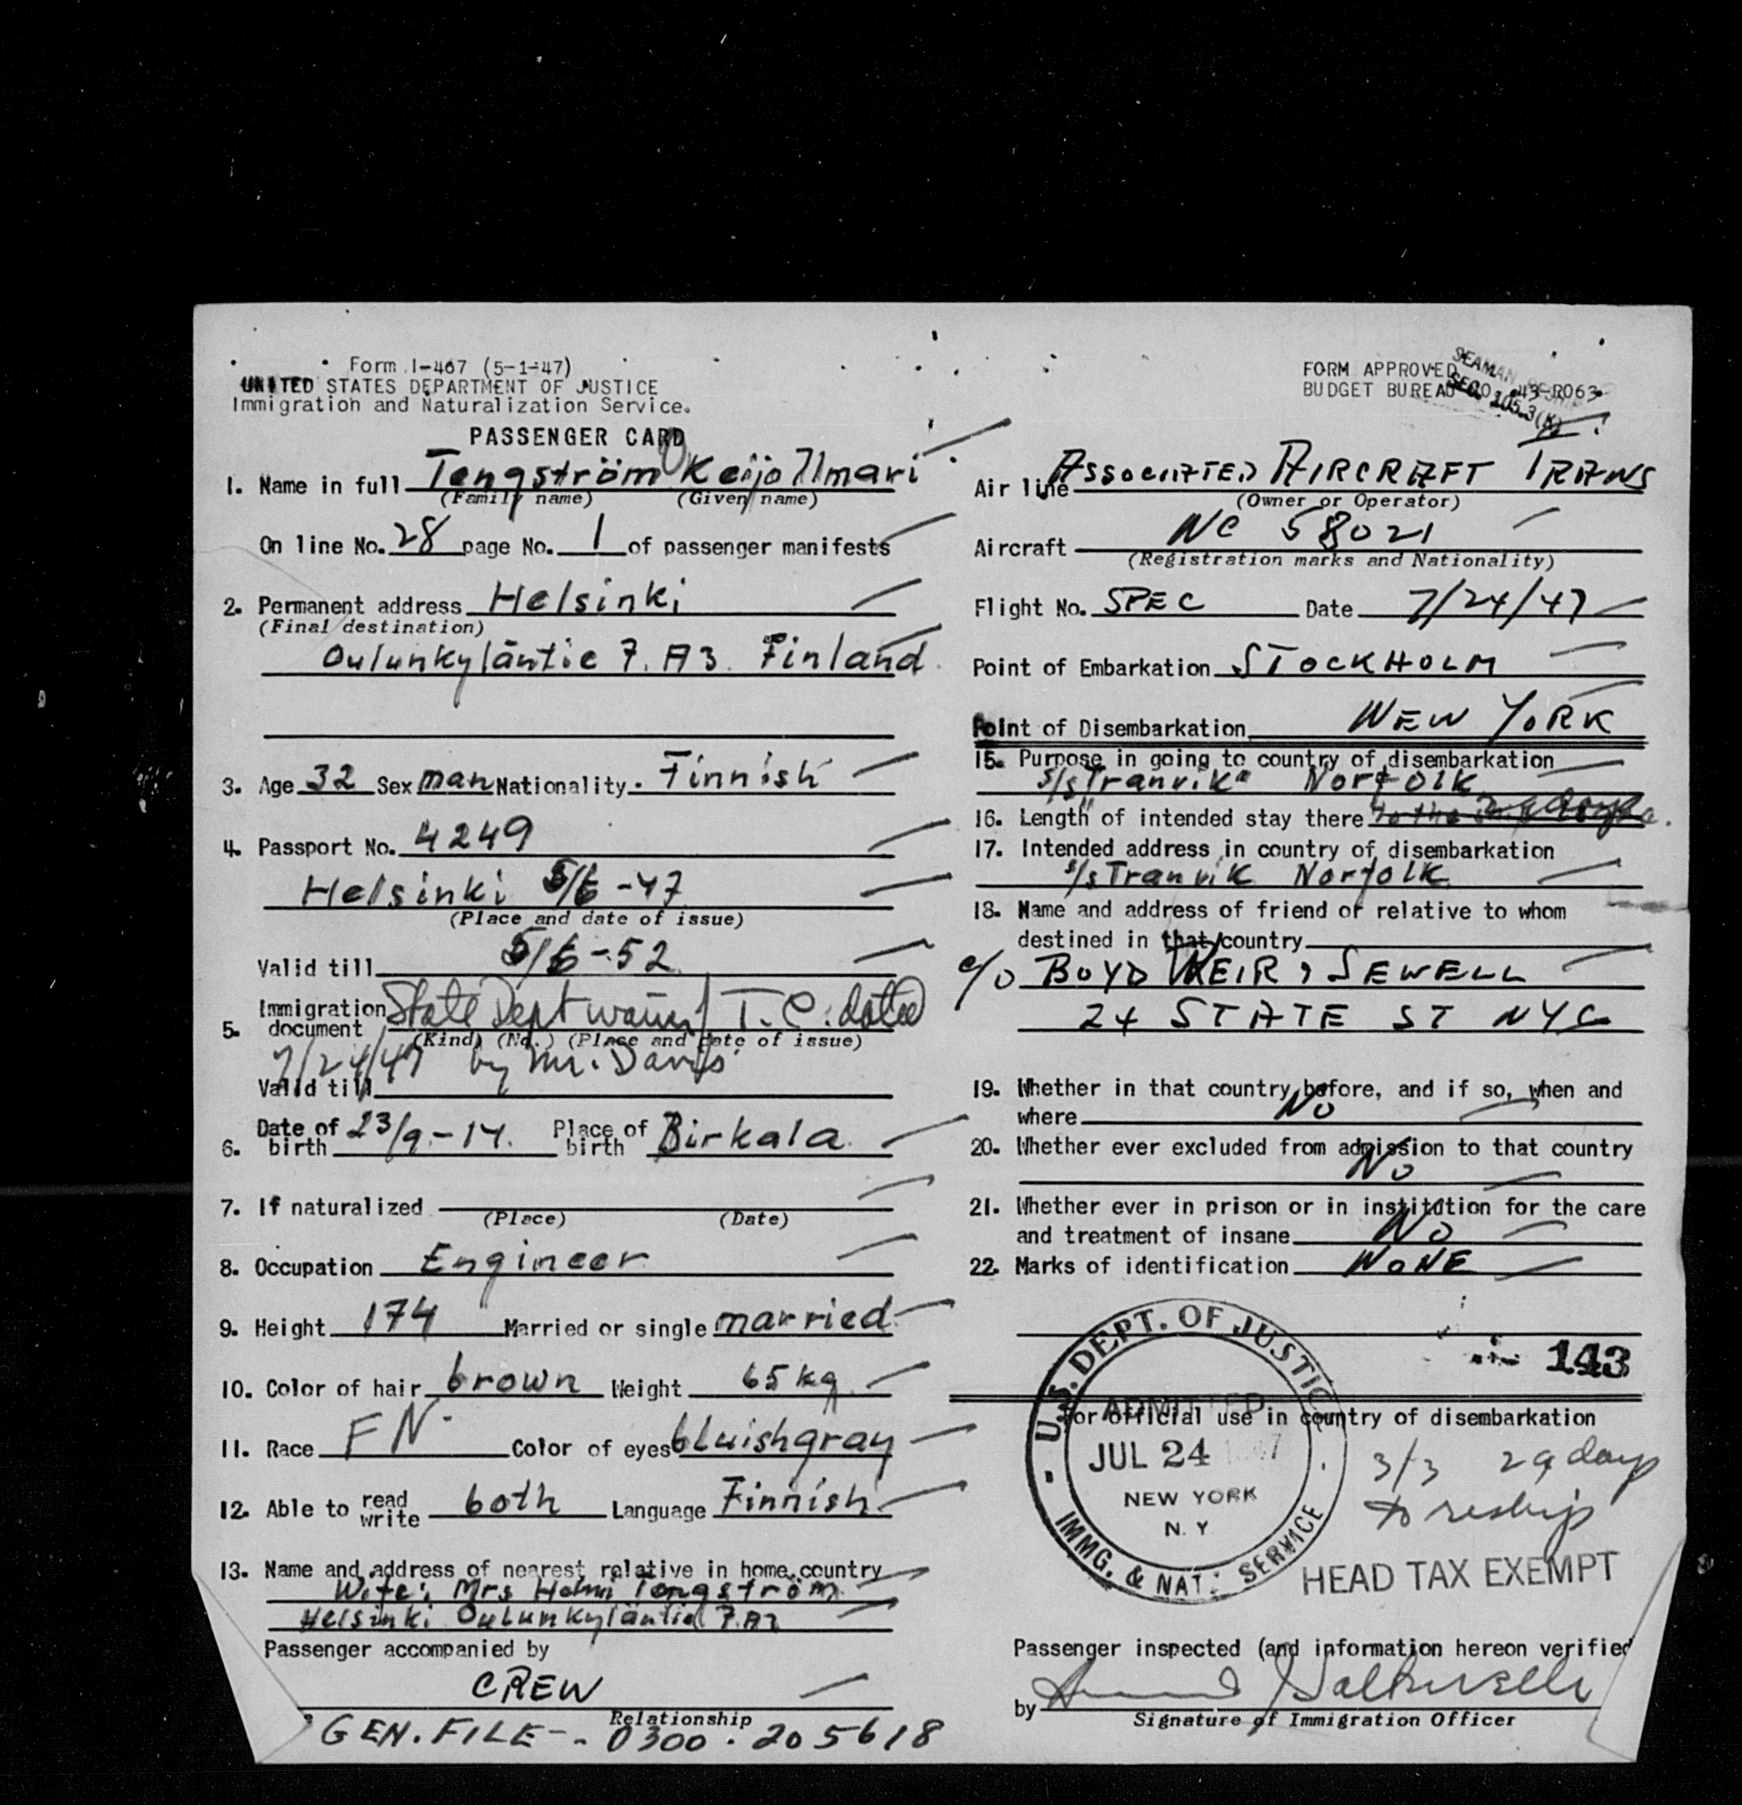 Form I-467 (5-1-47)
UNITED STATES DEPARTMENT OF JUSTICE
Immigration and Naturalization Service.
PASSENGER CARD
1. Name in full Tengström Keijo Ilmari
(Family name) (Given name)
On line No. 28 page No. 1 of passenger manifests
2. Permanent address Helsinki
(Final destination)
Oulunkyläntie 7. A3. Finland
3. Age 32 Sex man Nationality. Finnish
4. Passport No. 4249
Helsinki 5/6-47
(Place and date of issue)
Valid till 5/6-52
5. Immigration document State Dept waiver T.C. dated
(Kind) (No.) (Place and date of issue)
7/24/47 by Mr. Davis
Valid till
6. Date of birth 23/9-14. Place of birth Birkala
7. If naturalized
(Place) (Date)
8. Occupation Engineer
9. Height 174 Married or single married
10. Color of hair brown Weight 65 kg
11. Race FN. Color of eyes bluishgray
12. Able to read write both Language Finnish
13. Name and address of nearest relative in home country
Wife: Mrs Helmi Tengström
Helsinki Oulunkyläntie 7. A3
Passenger accompanied by
CREW
Relationship
GEN. FILE - 0300.205618
FORM APPROVED
BUDGET BUREAU NO. 43-R063
SEAMAN
SEC. 105.3(K)
Air line ASSOCIATED AIRCRAFT TRANS
(Owner or Operator)
Aircraft NC 58021
(Registration marks and Nationality)
Flight No. SPEC Date 7/24/47
Point of Embarkation STOCKHOLM
Point of Disembarkation NEW YORK
15. Purpose in going to country of disembarkation
s/s "Tranvik" Norfolk
16. Length of intended stay there
17. Intended address in country of disembarkation
s/s Tranvik Norfolk
18. Name and address of friend or relative to whom
destined in that country
c/o BOYD WEIR, SEWELL
24 STATE ST NYC
19. Whether in that country before, and if so, when and
where No
20. Whether ever excluded from admission to that country
No
21. Whether ever in prison or in institution for the care
and treatment of insane No
22. Marks of identification NONE
143
For official use in country of disembarkation
U.S. DEPT. OF JUSTICE
ADMITTED
JUL 24 1947
NEW YORK
N.Y
IMMG. & NAT. SERVICE
3/3 29 days
to reship
HEAD TAX EXEMPT
Passenger inspected (and information hereon verified
by
Signature of Immigration Officer